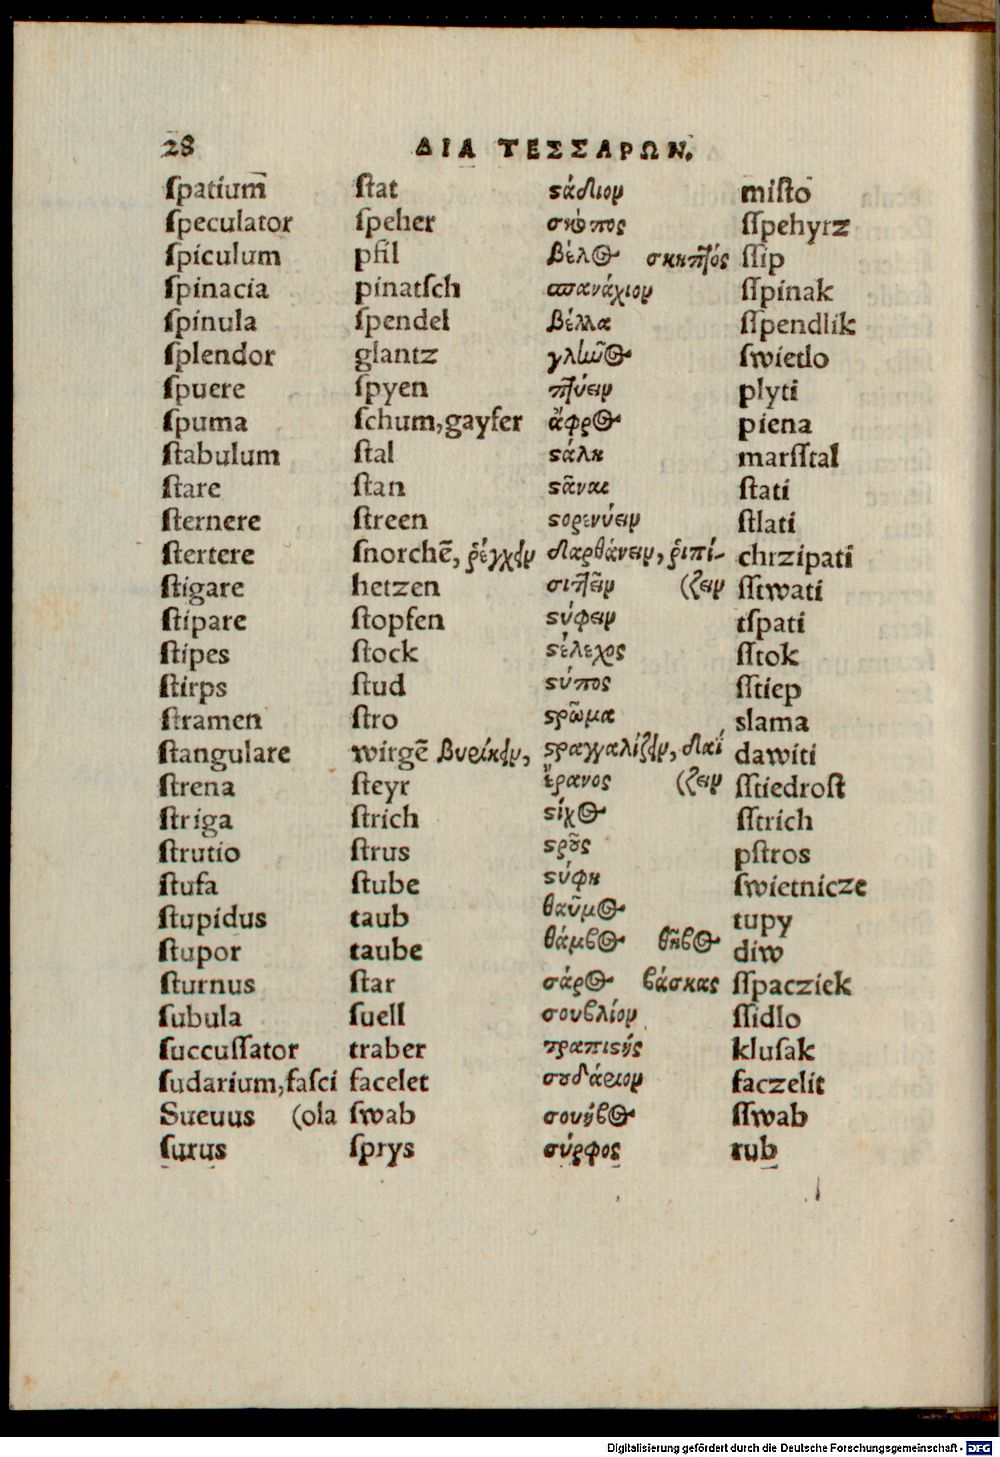 28 ΔΙΑ ΤΕΣΣΑΡΩΝ.
ſpatium ſtat ϛάδιον miſto
ſpeculator ſpeher σκόπος ſſpehyrz
ſpiculum pfil βέλος σκηπτός ſſip
ſpinacia pinatſch σπανάχιον ſſpinak
ſpinula ſpendel βέλλα ſſpendlik
ſplendor glantz ſwietlo
ſpuere ſpyen πτύειν plyti
ſpuma ſchum,gayfer ἄφρος piena
ſtabulum ſtal ϛάλη marſſtal
ſtare ſtan ϛᾶναι ſtati
ſternere ſtreen ϛορεννύειν ſtlati
ſtertere ſnorchē, ῥέγχειν δαρθάνειν, ῥιπί- chrzipati
ſtigare hetzen σιτῆειν (ζειν ſſtwati
ſtipare ſtopfen ϛύφειν tſpati
ſtipes ſtock ϛέλεχος ſſtok
ſtirps ſtud ϛύπος ſſtiep
ſtramen ſtro ϛρῶμα slama
ſtangulare wirgē βυρίκειν, ϛραγγαλίζειν, δαΐ dawiti
ſtrena ſteyr ἔρανος (ζειν ſſtiedroſt
ſtriga ſtrich ϛίχος ſſtrich
ſtrutio ſtrus ϛροῦς pſtros
ſtufa ſtube ϛύφη ſwietnicze
ſtupidus taub θαῦμος tupy
ſtupor taube θάμβος θῆβος diw
ſturnus ſtar σάρος βάσκας ſſpacziek
ſubula ſuell σουβλίον ſſidlo
ſuccuſſator traber τραπιϛής kluſak
ſudarium,faſci facelet σουδάριον faczelit
Sueuus (ola ſwab σουήβος ſſwab
ſurus ſprys σύρφος rub
Digitalisierung gefördert durch die Deutsche Forschungsgemeinschaft - DFG